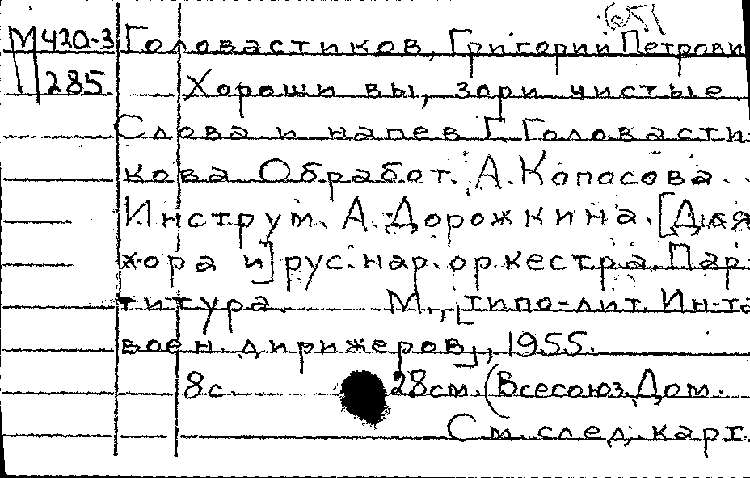 М420-3 Головастиков, Григорий Петрови
П 285 Хороши вы, зори чистые
Слова и напев Г. Головасти-
кова. Обработ. А. Копосова.
Инструм. А. Дорожкина. [Для
хора и] рус. нар. оркестра. Пар-
титура. М., [типо-лит. Ин-та
воен. дирижеров], 1955.
8 с. 28 см. (Всесоюз. Дом.
См. след. карт.